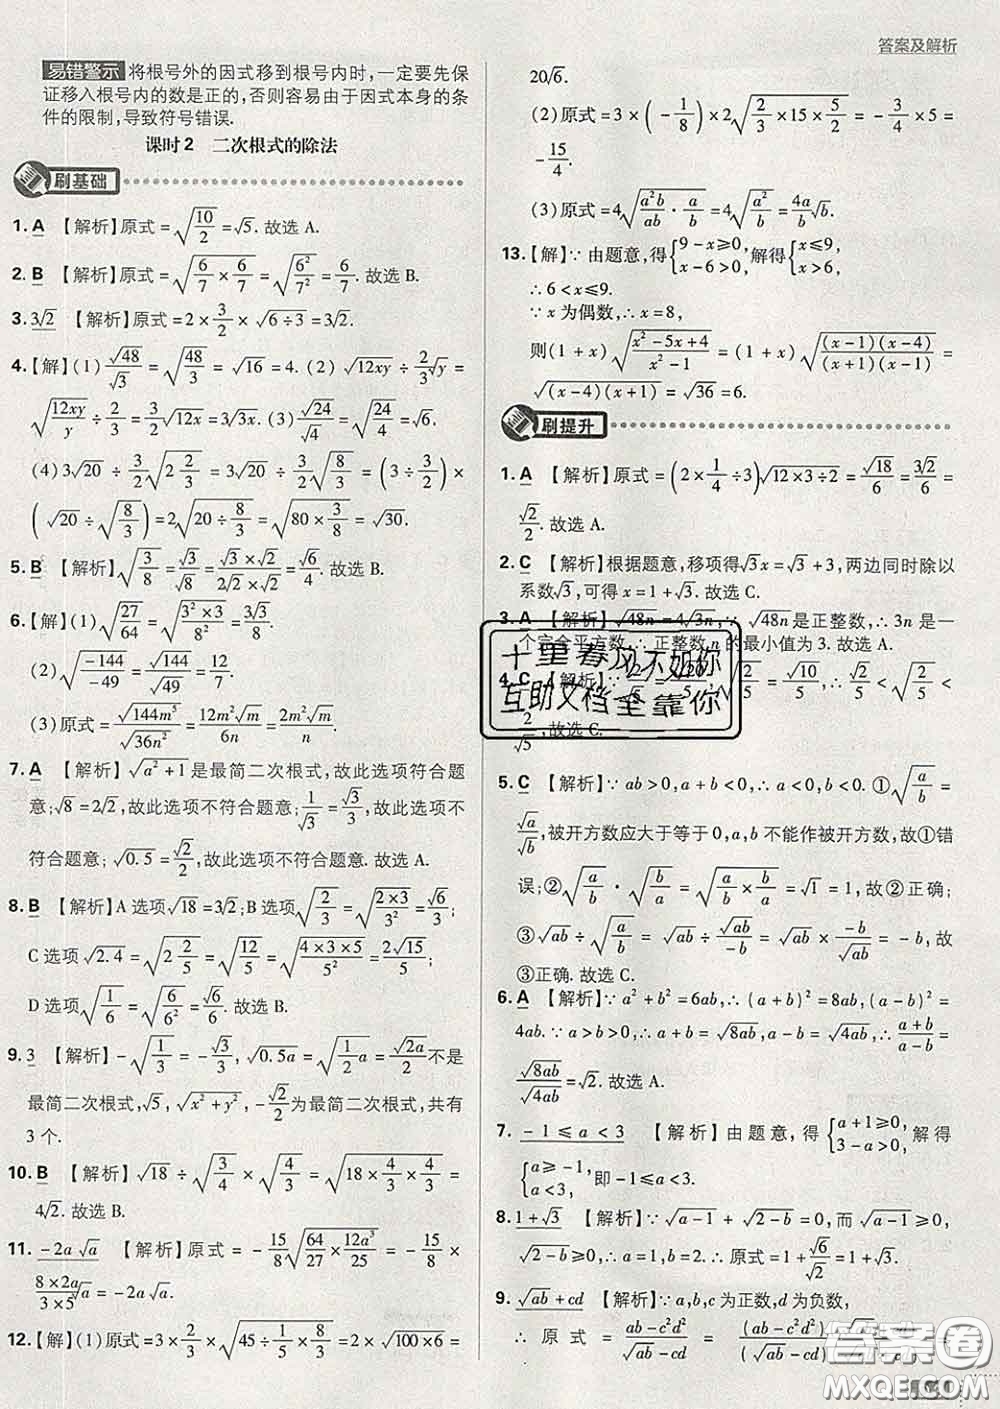 答案及解析
易错警示 将根号外的因式移到根号内时,一定要先保
证移入根号内的数是正的,否则容易由于因式本身的条
件的限制,导致符号错误.
课时2 二次根式的除法
刷基础
1. A 【解析】原式=√(10/2)=√5. 故选 A.
2. B 【解析】原式=√(6/7×6/7)=√(6²/7²)=6/7. 故选 B.
3. 3√2 【解析】原式=2×3/2×√(6÷3)=3√2.
4.【解】(1)√48/√3=√(48/3)=√16=4. (2)√(12xy)÷2/3√y=
√(12xy/y)÷2/3=3/2√(12x)=3√(3x). (3)√24/√4=√(24/4)=√6.
(4)3√20÷3/2√(2 2/3)=3√20÷3/2√(8/3)=(3÷3/2)×
(√20÷√(8/3))=2√(20÷8/3)=√(80×3/8)=√30.
5. B 【解析】√(3/8)=√3/√8=(√3×√2)/(2√2×√2)=√6/4. 故选 B.
6.【解】(1)√(27/64)=√((3²×3)/8²)=3√3/8.
(2)√(-144/-49)=√144/√49=12/7.
(3)原式=√(144m⁵)/√(36n²)=12m²√m/6n=2m²√m/n.
7. A 【解析】√(a²+1)是最简二次根式,故此选项符合题
意;√8=2√2,故此选项不符合题意;1/√3=√3/3,故此选项不
符合题意;√0.5=√2/2,故此选项不符合题意. 故选 A.
8. B 【解析】A选项√18=3√2;B选项√(2/3)=√((2×3)/3²)=√6/3;
C选项√2.4=√(2 2/5)=√(12/5)=√((4×3×5)/5²)=2√15/5;
D选项√(1/6)=√(6/6²)=√6/6. 故选 B.
9. 3 【解析】-√(1/3)=-√3/3,√(0.5a)=√(1/2 a)=√(2a)/2不是
最简二次根式,√5,√(x²+y²),-√2/2为最简二次根式,共有
3个.
10. B 【解析】√18÷√(3/4)×√(4/3)=√(18×4/3×4/3)=
4√2. 故选 B.
11. -2a√a 【解析】原式=-15/8√(64/27×12a³/25)=-15/8×
(8×2a)/(3×5)√a=-2a√a.
12.【解】(1)原式=3×2/3×√(45÷1/5×8/3)=2×√(100×6)=
20√6.
(2)原式=3×(-1/8)×2√(2/3×15×5/2)=
-15/4.
(3)原式=4√(a²b/ab·a/b)=4√(a²/b)=4a/b√b.
13.【解】∵由题意,得{9-x≥0, x-6>0,解得{x≤9, x>6,
∴6<x≤9.
∵x为偶数,∴x=8,
则(1+x)√((x²-5x+4)/(x²-1))=(1+x)√((x-1)(x-4)/((x+1)(x-1)))=
√((x-4)(x+1))=√36=6.
刷提升
1. A 【解析】原式=(2×1/4÷3)√(12×3÷2)=√18/6=3√2/6=
√2/2. 故选 A.
2. C 【解析】根据题意,移项得√3x=√3+3,两边同时除以
系数√3,可得x=1+√3. 故选 C.
3. A 【解析】√(48n)=4√(3n),∵√(48n)是正整数,∴3n是一
个完全平方数,∴正整数n的最小值为3. 故选 A.
4. C 【解析】
2/√5,故选 C.
5. C 【解析】∵ab>0,a+b<0,∴a<0,b<0. ①√(a/b)=
√a/√b,被开方数应大于等于0,a,b不能作被开方数,故①错
误;②√(a/b)·√(b/a)=√(a/b×b/a)=√1=1,故②正确;
③√(ab)÷√(a/b)=√(ab)÷√(ab)/(-b)=√(ab)×(-b)/√(ab)=-b,故
③正确. 故选 C.
6. A 【解析】∵a²+b²=6ab,∴(a+b)²=8ab,(a-b)²=
4ab. ∵a>b>0,∴a+b=√(8ab),a-b=√(4ab),∴(a+b)/(a-b)=
√(8ab)/√(4ab)=√2. 故选 A.
7. -1≤a<3 【解析】由题意,得{a+1≥0, 3-a>0,解得
{a≥-1, a<3,即-1≤a<3.
8. 1+√3 【解析】∵√(a-1)+√(2-b)=0,而√(a-1)≥0,
√(2-b)≥0,∴a=1,b=2. ∴原式=1+√6/√2=1+√3.
9. √(ab)+cd 【解析】∵a,b,c为正数,d为负数,
∴原式=(ab-c²d²)/(√(ab)-cd)=
十里春风不如你
互助文档全靠你
答案圈
MXQE.COM